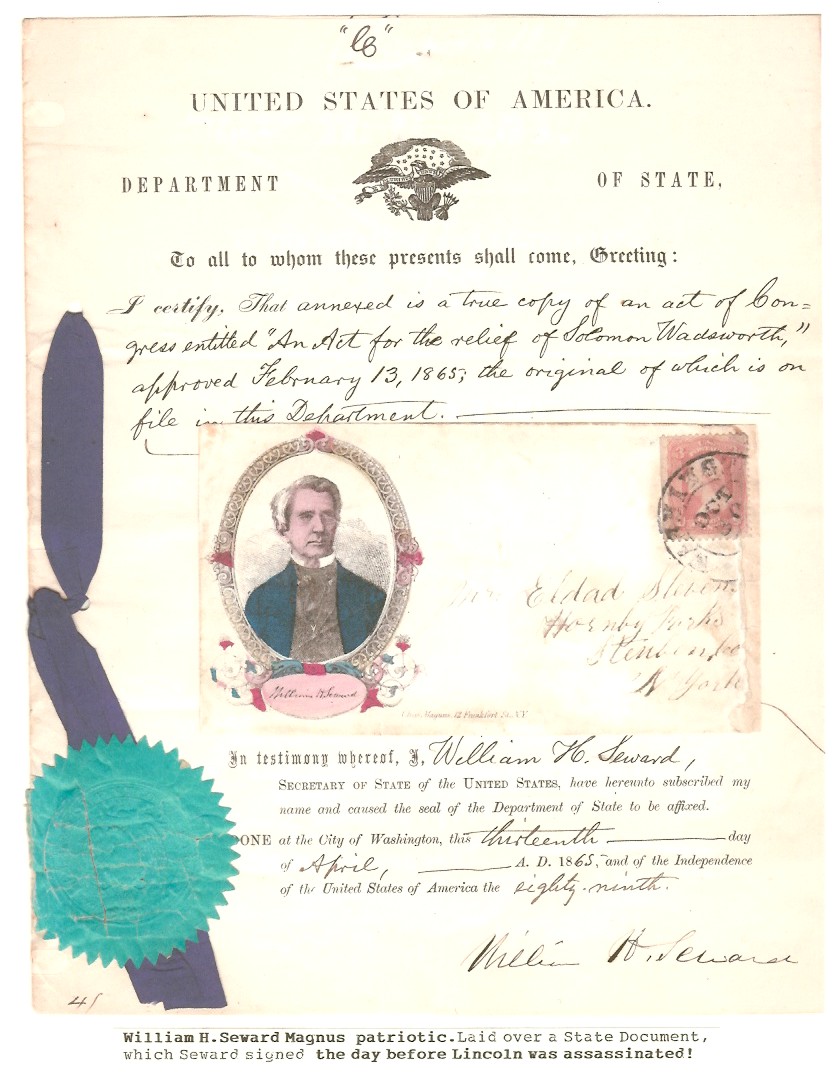 "C"
UNITED STATES OF AMERICA.
DEPARTMENT OF STATE,
To all to whom these presents shall come, Greeting:
I certify, That annexed is a true copy of an act of Con=
gress entitled "An Act for the relief of Solomon Wadsworth,"
approved February 13, 1865; the original of which is on
file in this Department.
WASHING
OCT
Eldad
Hornby Forks
Steuben Co
N York
William H. Seward
Chas. Magnus, 12 Frankfort St., N.Y.
In testimony whereof, I, William H. Seward,
SECRETARY OF STATE of the UNITED STATES, have hereunto subscribed my
name and caused the seal of the Department of State to be affixed.
DONE at the City of Washington, this thirteenth day
of April, A. D. 1865, and of the Independence
of the United States of America the eighty-ninth.
William H. Seward
William H.Seward Magnus patriotic.Laid over a State Document,
which Seward signed the day before Lincoln was assassinated!